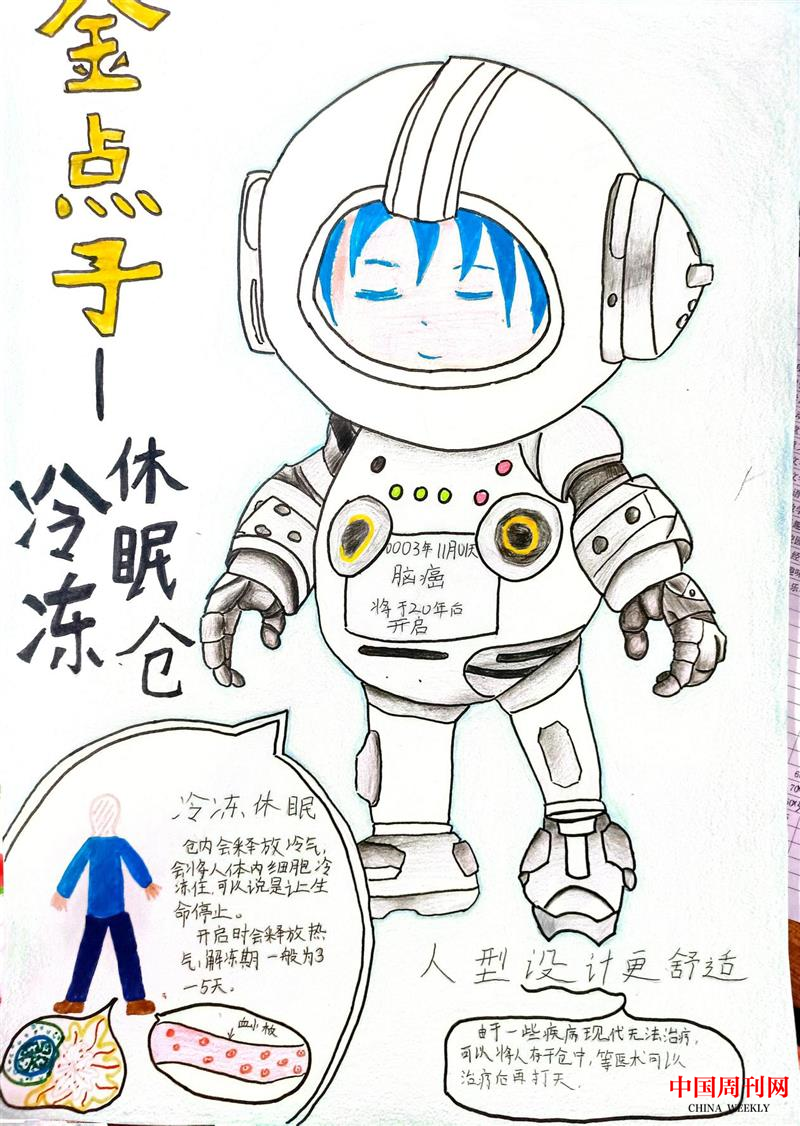 金点子—
冷冻
休眠仓
0003年11月01天
脑癌
将于20年后
开启
冷冻休眠
仓内会释放冷气,
会将人体内细胞冷
冻住,可以说是让生
命停止。
开启时会释放热
气,解冻期一般为3
—5天。
血小板
人型设计更舒适
由于一些疾病现代无法治疗,
可以将人存于仓中,等医术可以
治疗后再打天.
中国周刊网
CHINA WEEKLY